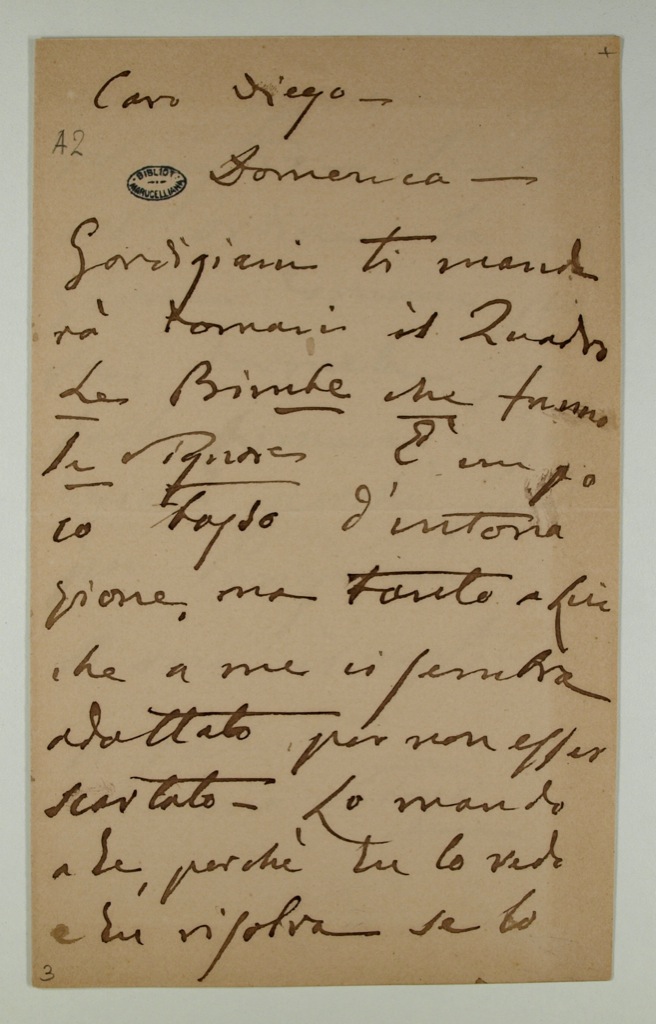 Caro Diego —
A2
BIBLIOT.
MARUCELLIANA
Domenica —
Gordigiani ti mande
rà domani il Quadro
Le Bimbe che fanno
le Signore È un po
co basso d'intona
zione, ma tanto a Lui
che a me ci sembra
adattato per non esser
scartato — Lo mando
a te, perchè tu lo veda
e tu risolva se lo
3